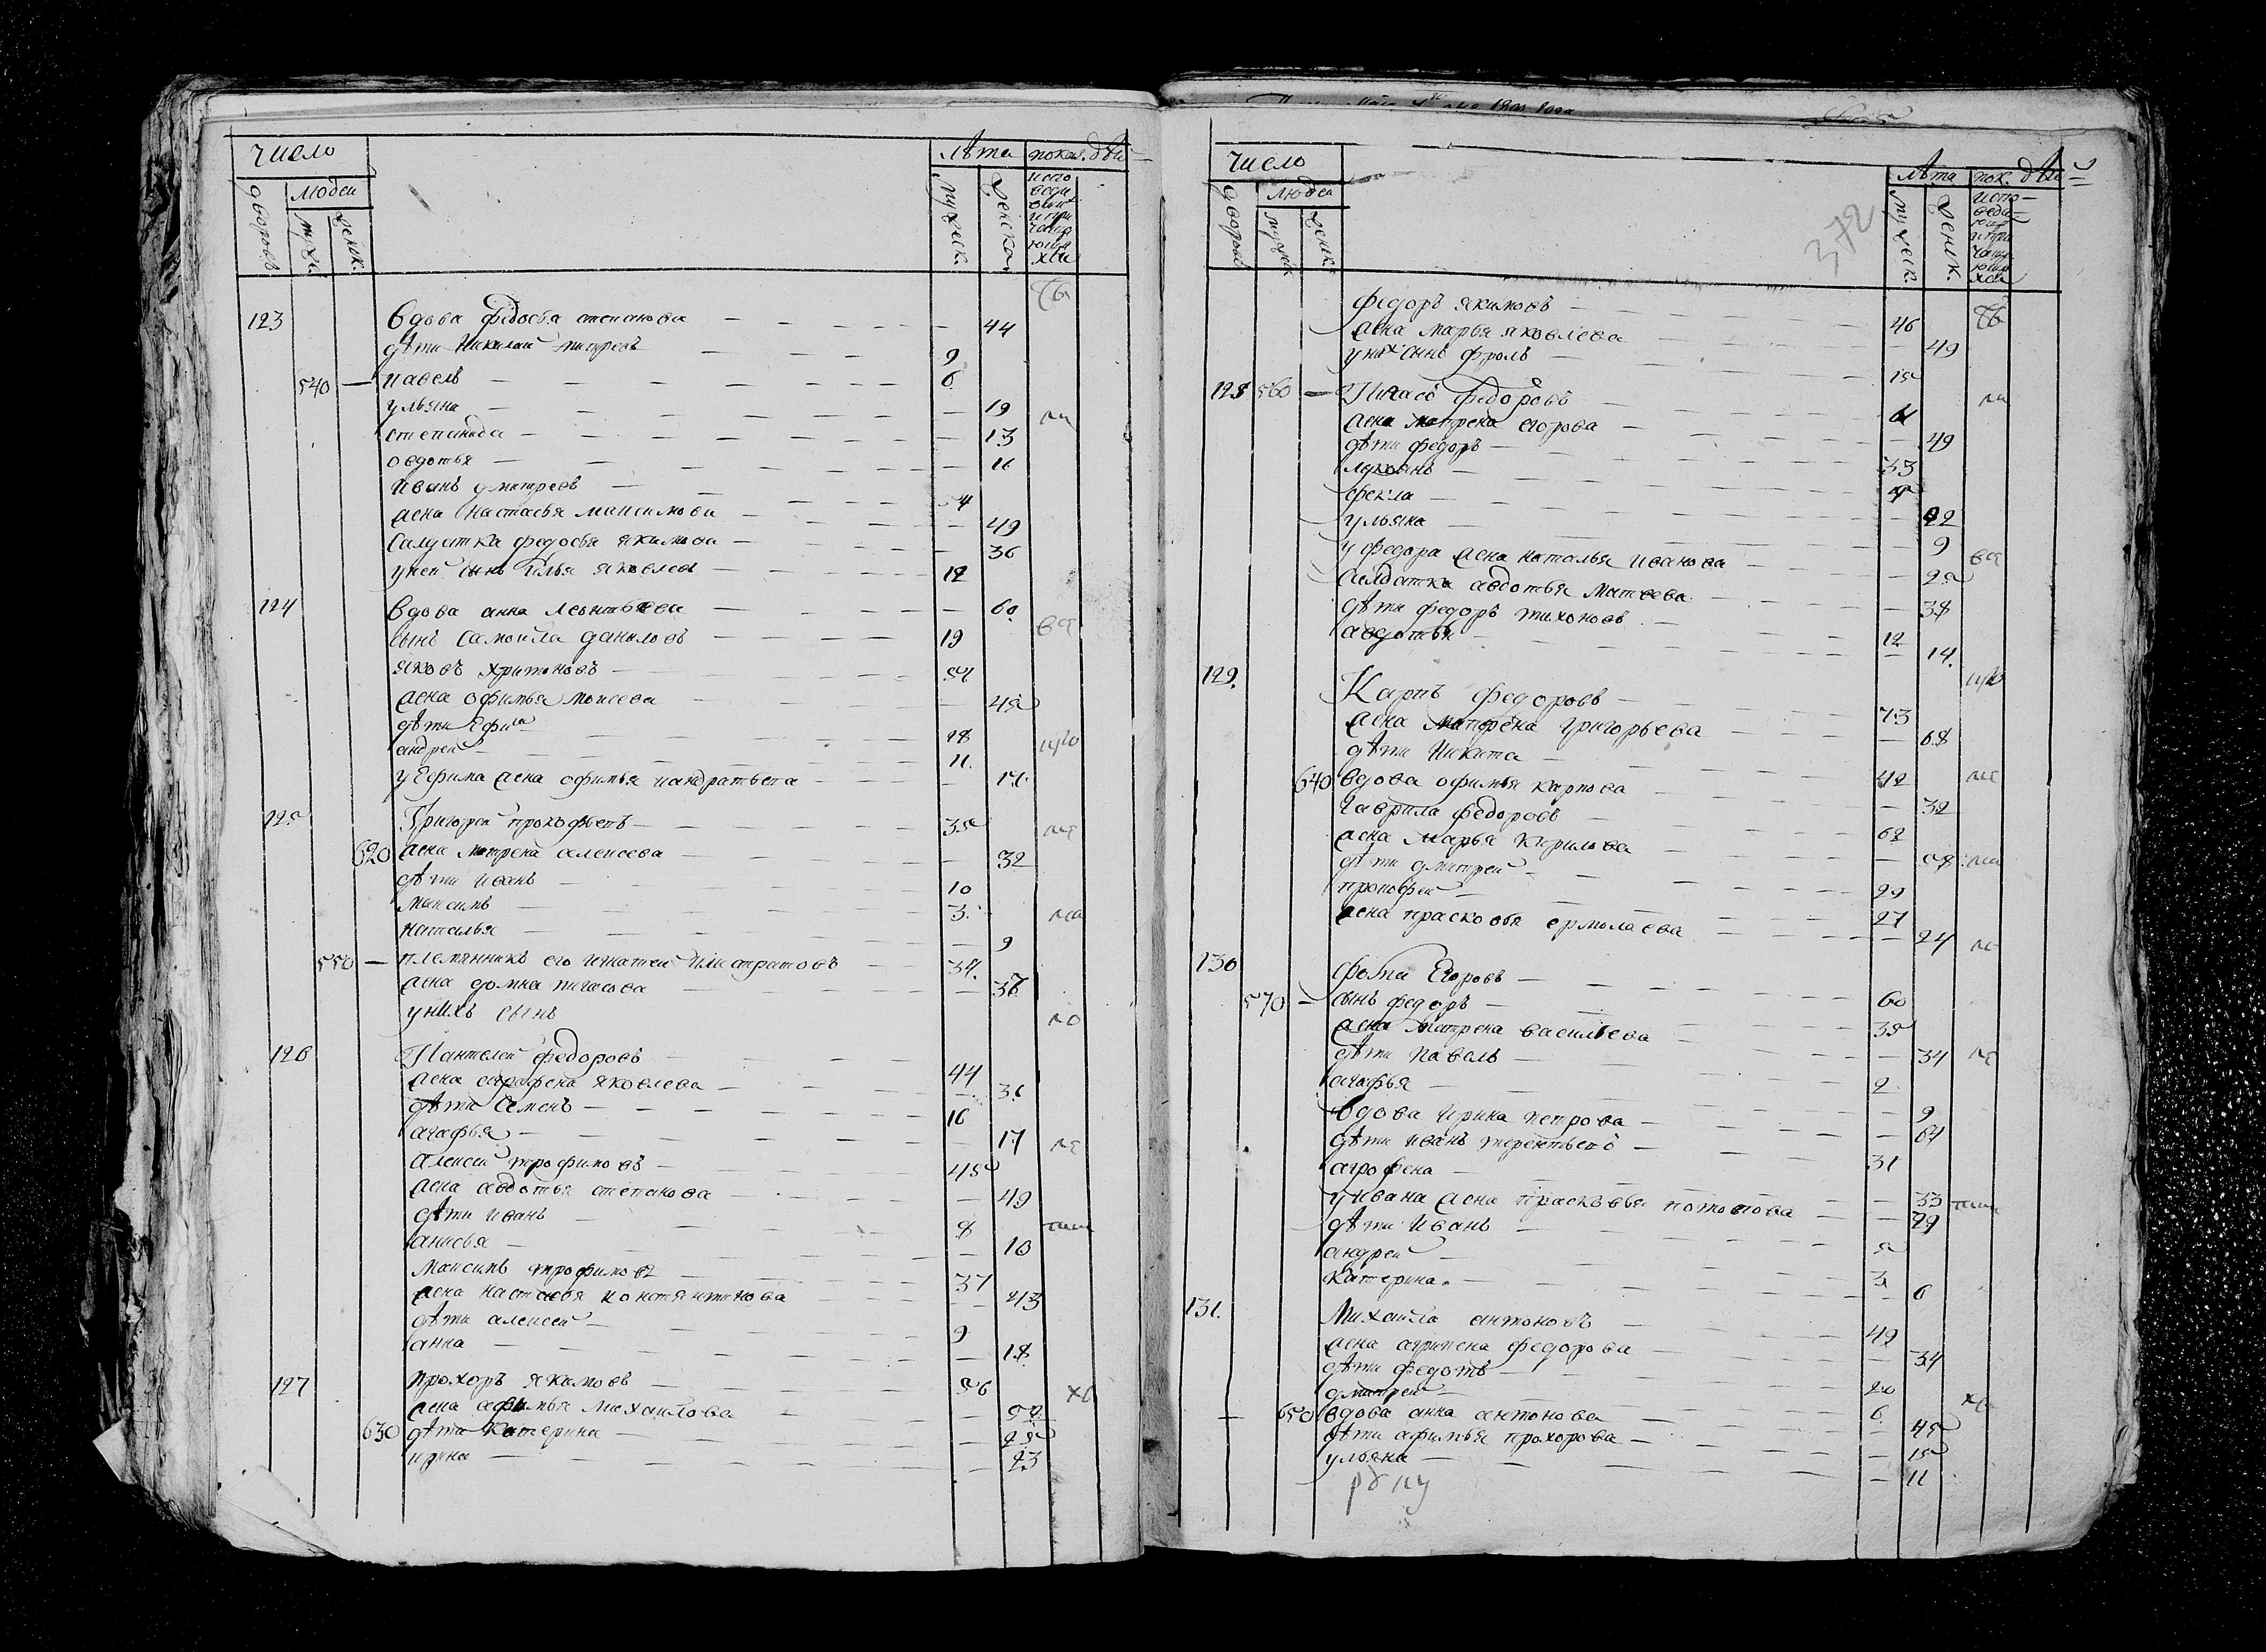 число лѣта показ. дѣи
дворовъ людей мужеск. женска испо веди вши и при чаща ющи хся
мужс. женск.
123 вдова федосья степанова — 44
дѣти Николай митревъ 9
540 — павелъ 6
ульяна — 19
степанида — 13
овдотья — 16
иванъ дмитревъ 54
жена настасья максимова — 49
салдатка федосья якимова — 36
у ней сынъ илья яковлев 12
124 вдова анна леонтьева — 60
сынъ самоила даниловъ 19
яковъ харитоновъ
жена офимья моисеева — 45
дѣти Ефим 28
андрей 11
у Ефима жена офимья кандратьева —
125 Григорей прокофьевъ 35
620 жена матрена алексеева — 32
дѣти иванъ 10
максимъ 3
наталья — 9
550 — племянникъ его игнатей 34
жена домна пигасова — 36
у нихъ сынъ
126 Пантелей федоровъ 44
жена аграфена яковлева — 36
дѣти семенъ 16
агафья — 17
алексей трофимовъ 45
жена авдотья степанова — 49
дѣти иванъ 8
анисья — 10
максимъ трофимовъ 37
жена настасья константинова — 43
дѣти алексей 9
анна — 18
127 прохоръ якимовъ 56
жена афимья михаилова —
630 дѣти катерина — 25
ирина — 23
число лѣта пок. дѣи
дворовъ людей мужеск. женск. испо веди ющи и при чаща ющи хся
мужск. женск.
372
федоръ якимовъ 46
жена марья яковлева 49
у них сынъ фролъ 15
128 560 — Пигасъ федоровъ 61
жена матрена егорова — 49
дѣти федоръ 33
лукьянъ
фекла — 22
ульяна — 9
у федора жена наталья иванова — 25
салдатка авдотья матвеева — 38
дѣти федоръ тихоновъ 12
авдотья — 14
129 Карпъ федоровъ 73
жена матрена григорьева — 68
дѣти никита 42
640 вдова офимья карпова — 32
гаврила федоровъ 62
жена марья кирилова — 58
дѣти дмитрей 29
прокофей 27
жена прасковья ермолаева — 24
130 фома Егоровъ 60
570 — сынъ федоръ 35
жена матрена васильева — 34
дѣти павелъ 2
агафья — 9
вдова ирина петрова — 64
дѣти иванъ терентьевъ 31
агрофена — 33
у ивана жена прасковья потопова — 29
дѣти иванъ 5
андрей 3
катерина — 6
131 Михаила антоновъ 49
жена агрипена федорова — 34
дѣти федотъ 20
дмитрей 6
650 вдова анна антонова — 45
дѣти афимья прохорова — 15
ульяна — 11